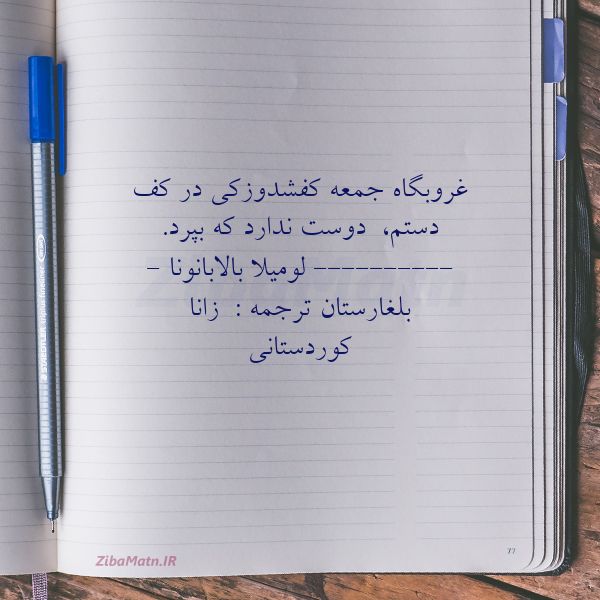 غروبگاه جمعه کفشدوزکی در کف
دستم، دوست ندارد که بپرد.
---------- لومیلا بالابانونا -
بلغارستان ترجمه : زانا
کوردستانی
ZibaMatn
ZibaMatn.IR
77